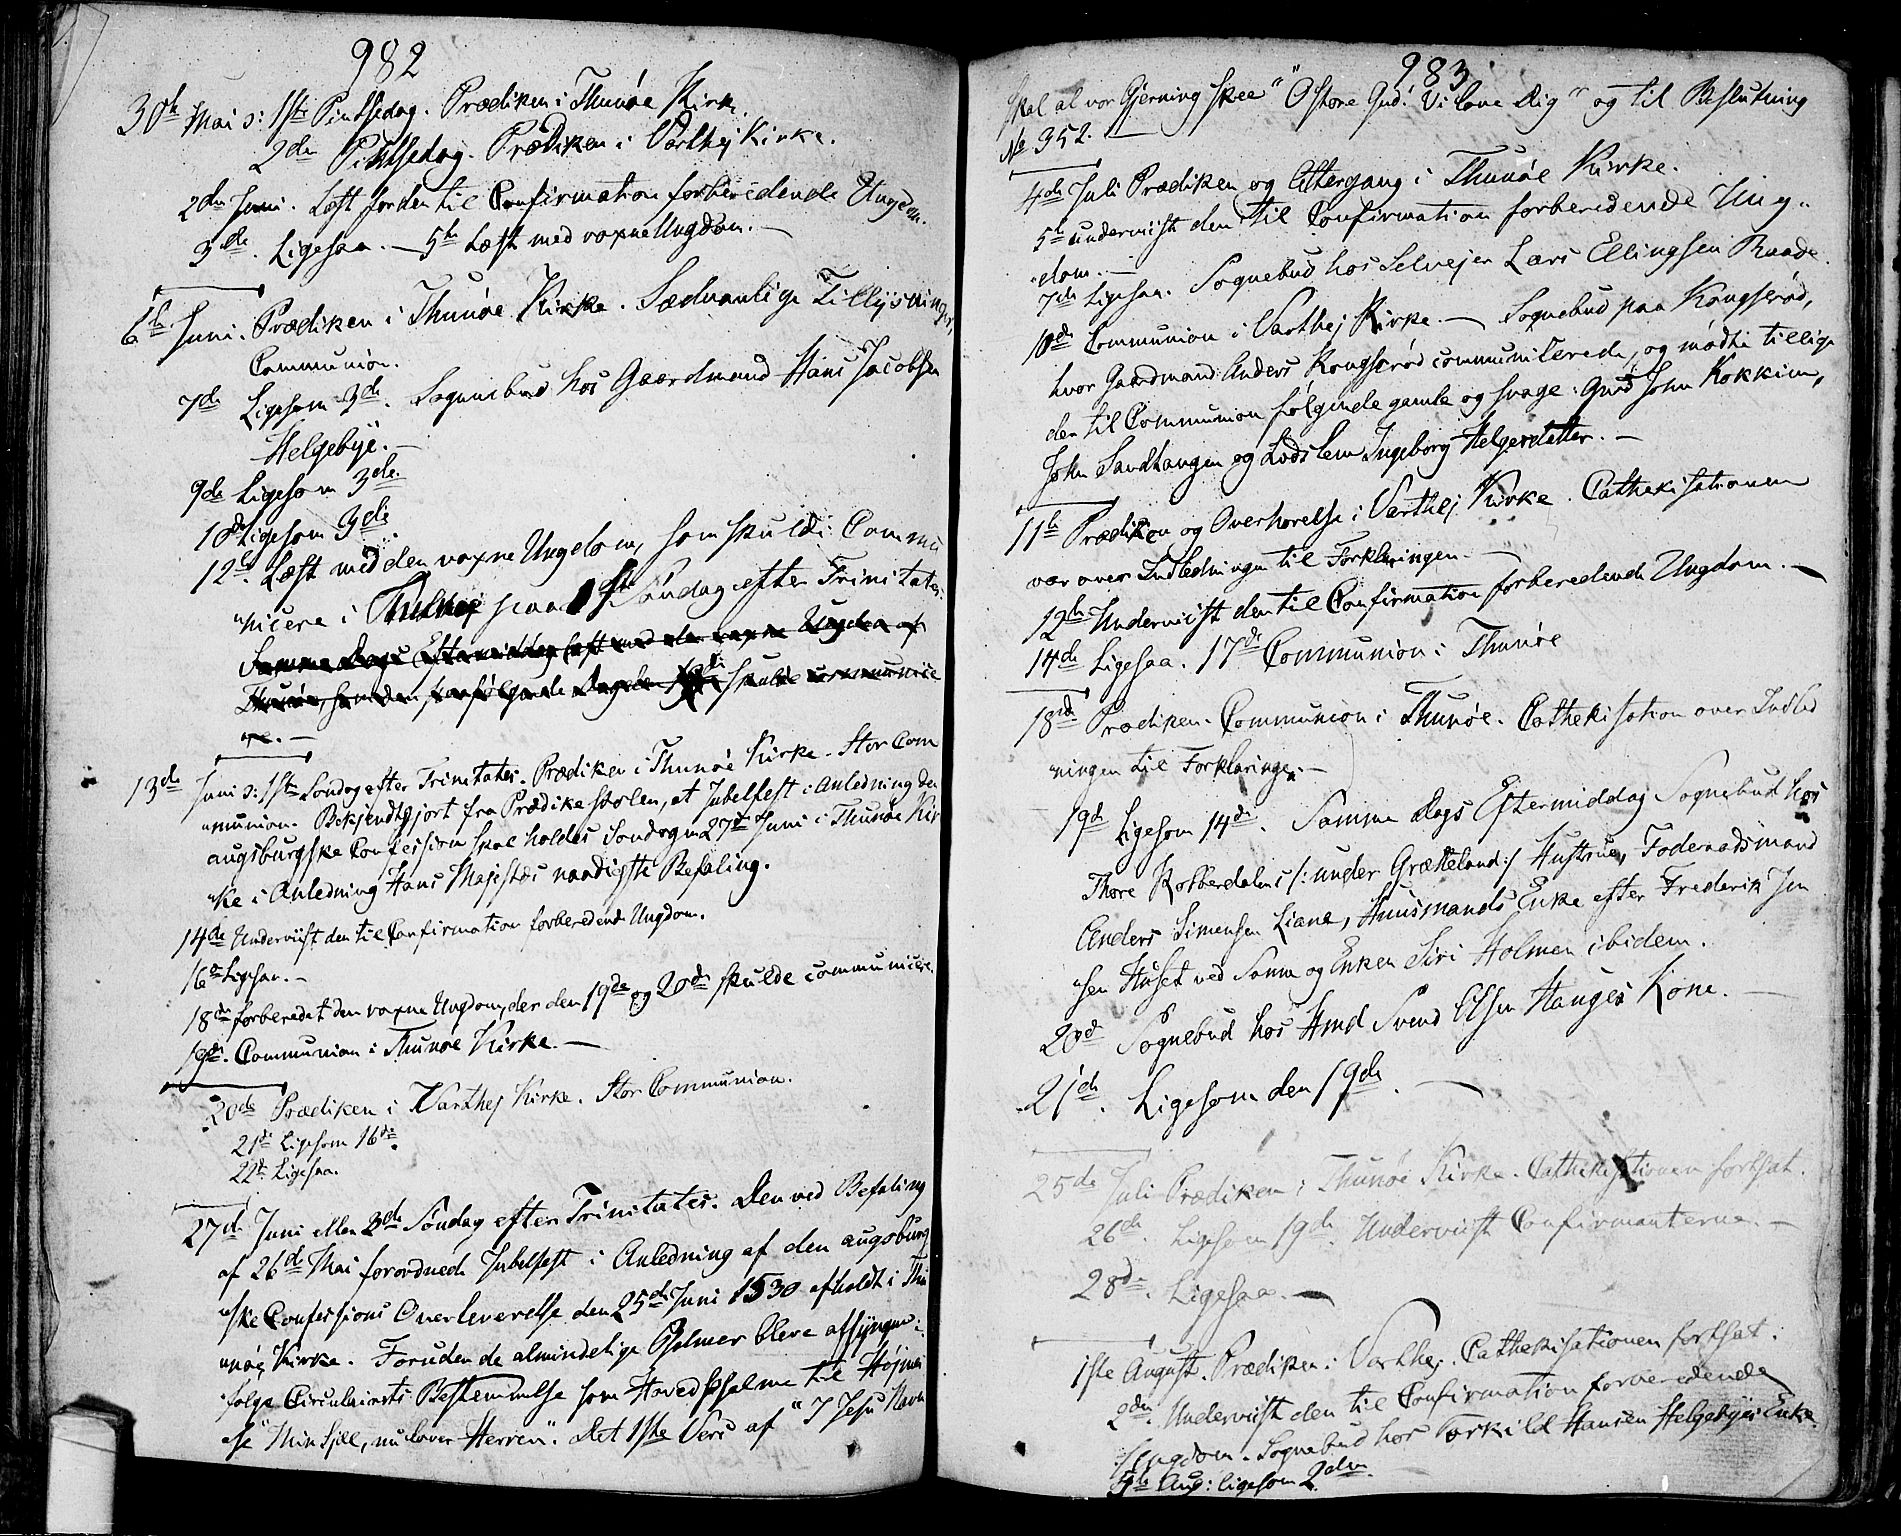 982
30te Mai ɔ: 1ste Pintsedag. Prædiken i Thunøe Kirke.
2den Pintsedag. Prædiken i Varthej Kirke.
2den Juni. Læst for den til Confirmation forberedende Ungdom.
3de. Ligesaa. — 5te Læst med voxne Ungdom. —
6te Juni. Prædiken i Thunøe Kirke. Sædvanlige Tillysninger,
Communion.
7de Ligesom 3de. Sognebud hos Gaardmand Hans Jacobsen
Helgebye. —
9de Ligesom 3de
10de Ligesom 3die.
12te. Læst med den voxne Ungdom, som skulde Commu
nicere i paa 1ste Søndag efter Trinitates.
Samme Dags Eftermiddag læst med den voxne Ungdom af
Thunøe, som den paafølgende Dag den skulde communice
re. —
13de Juni ɔ: 1ste Søndag efter Trinitates. Prædiken i Thunøe Kirke. Stor Com
munion. Bekjendtgjort fra Prædikestolen, at Jubelfest i Anledning den
augsburgske Confession skal holdes Søndagen 27de Juni i Thunøe Kir
ke i Anledning Hans Majestæts naadigste Befaling.
14de Underviist den til Confirmation forberedende Ungdom.
16de Ligesaa. —
18de forberedet den voxne Ungdom, der den 19de og 20de skulde communicere.
19de. Communion i Thunøe Kirke. —
20de Prædiken i Varthej Kirke. Stor Communion.
21de Ligesom 16de.
22de Ligesaa.
27de Juni eller 3de Søndag efter Trinitates. Den ved Befaling
af 26de Mai forordnede Jubelfest i Anledning af den augsburg
ske Confessions Overleverelse den 25de Juni 1530 afholdt i Thu
nøe Kirke. Foruden de almindelige Psalmer bleve afsyngne i
følge Circulairets Bestemmelse som Hovedpsalme til Højmes
se "Min Sjæl, nu lover Herren". Det 1ste Vers af "I Jesu Navn
983
skal al vor Gjerning skee" "O store Gud! Vi love Dig" og til Beslutning
No 352. —
4de Juli Prædiken og Altergang i Thunøe Kirke.
5te underviist den til Confirmation forberedende Ung-
dom. —
7de Ligesaa. Sognebud hos Selvejer Lars Ellingsen Raade.
10de Communion i Varthej Kirke. — Sognebud paa Kongserød,
hvor Gaardmand Anders Kongserød communicerede, og mødte tillige
der til Communion følgende gamle og svage: Gmd John Kokkim,
John Sandtangen og Lodslem Ingeborg Helgesdatter. —
11te Prædiken og Overhørelse i Varthej Kirke. Cathekisationen
var over Indledningen til Forklaringen. —
12te Underviist den til Confirmation forberedende Ungdom. —
14de Ligesaa. 17de Communion i Thunøe
18de Prædiken. Communion i Thunøe. Cathekisation over Indled
ningen til Forklaringen. —
19de Ligesom 14de. Samme Dags Eftermiddag Sognebud hos
Thore Kolberdalens /: under Græsseland :/ Hustrue, Føderaadsmand
Anders Simensen Liane, Huusmands Enke efter Frederik Jen
sen Huset ved Sanne og Enken Siri Holmen ibidem.
20de Sognebud hos Hmd Svend Olsen Hauges Kone. —
21de. Ligesom den 19de. —
25de Juli Prædiken i Thunøe Kirke. Cathekisationen fortsat.
26de. Ligesom 19de. Underviist Confirmanterne. —
28de. Ligesaa. —
1ste August. Prædiken i Varthej. Cathekisationen fortsat.
2den. Underviist den til Confirmation forberedende
Ungdom. Sognebud hos Torkild Hansen Helgebyes Enke.
5te Aug: ligesom 2den.